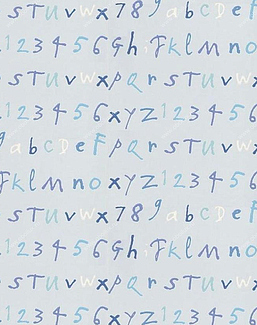 s T U v w x 7 8 9 a b c D e F
1 2 3 4 5 6 G h i J k l M n o
s T U v w x p Q r s T U v w x
1 2 3 4 5 6 x y z 1 2 3 4 5 6
9 a b c D e F s T U v w x 7 8
J k l M n o x y z 1 2 3 4 5 6
s T U v w x 7 8 9 a b c D e F
1 2 3 4 5 6 G h i J k l M n o
s T U v w x p Q r s T U v w x
1 2 3 4 5 6 x y z 1 2 3 4 5 6